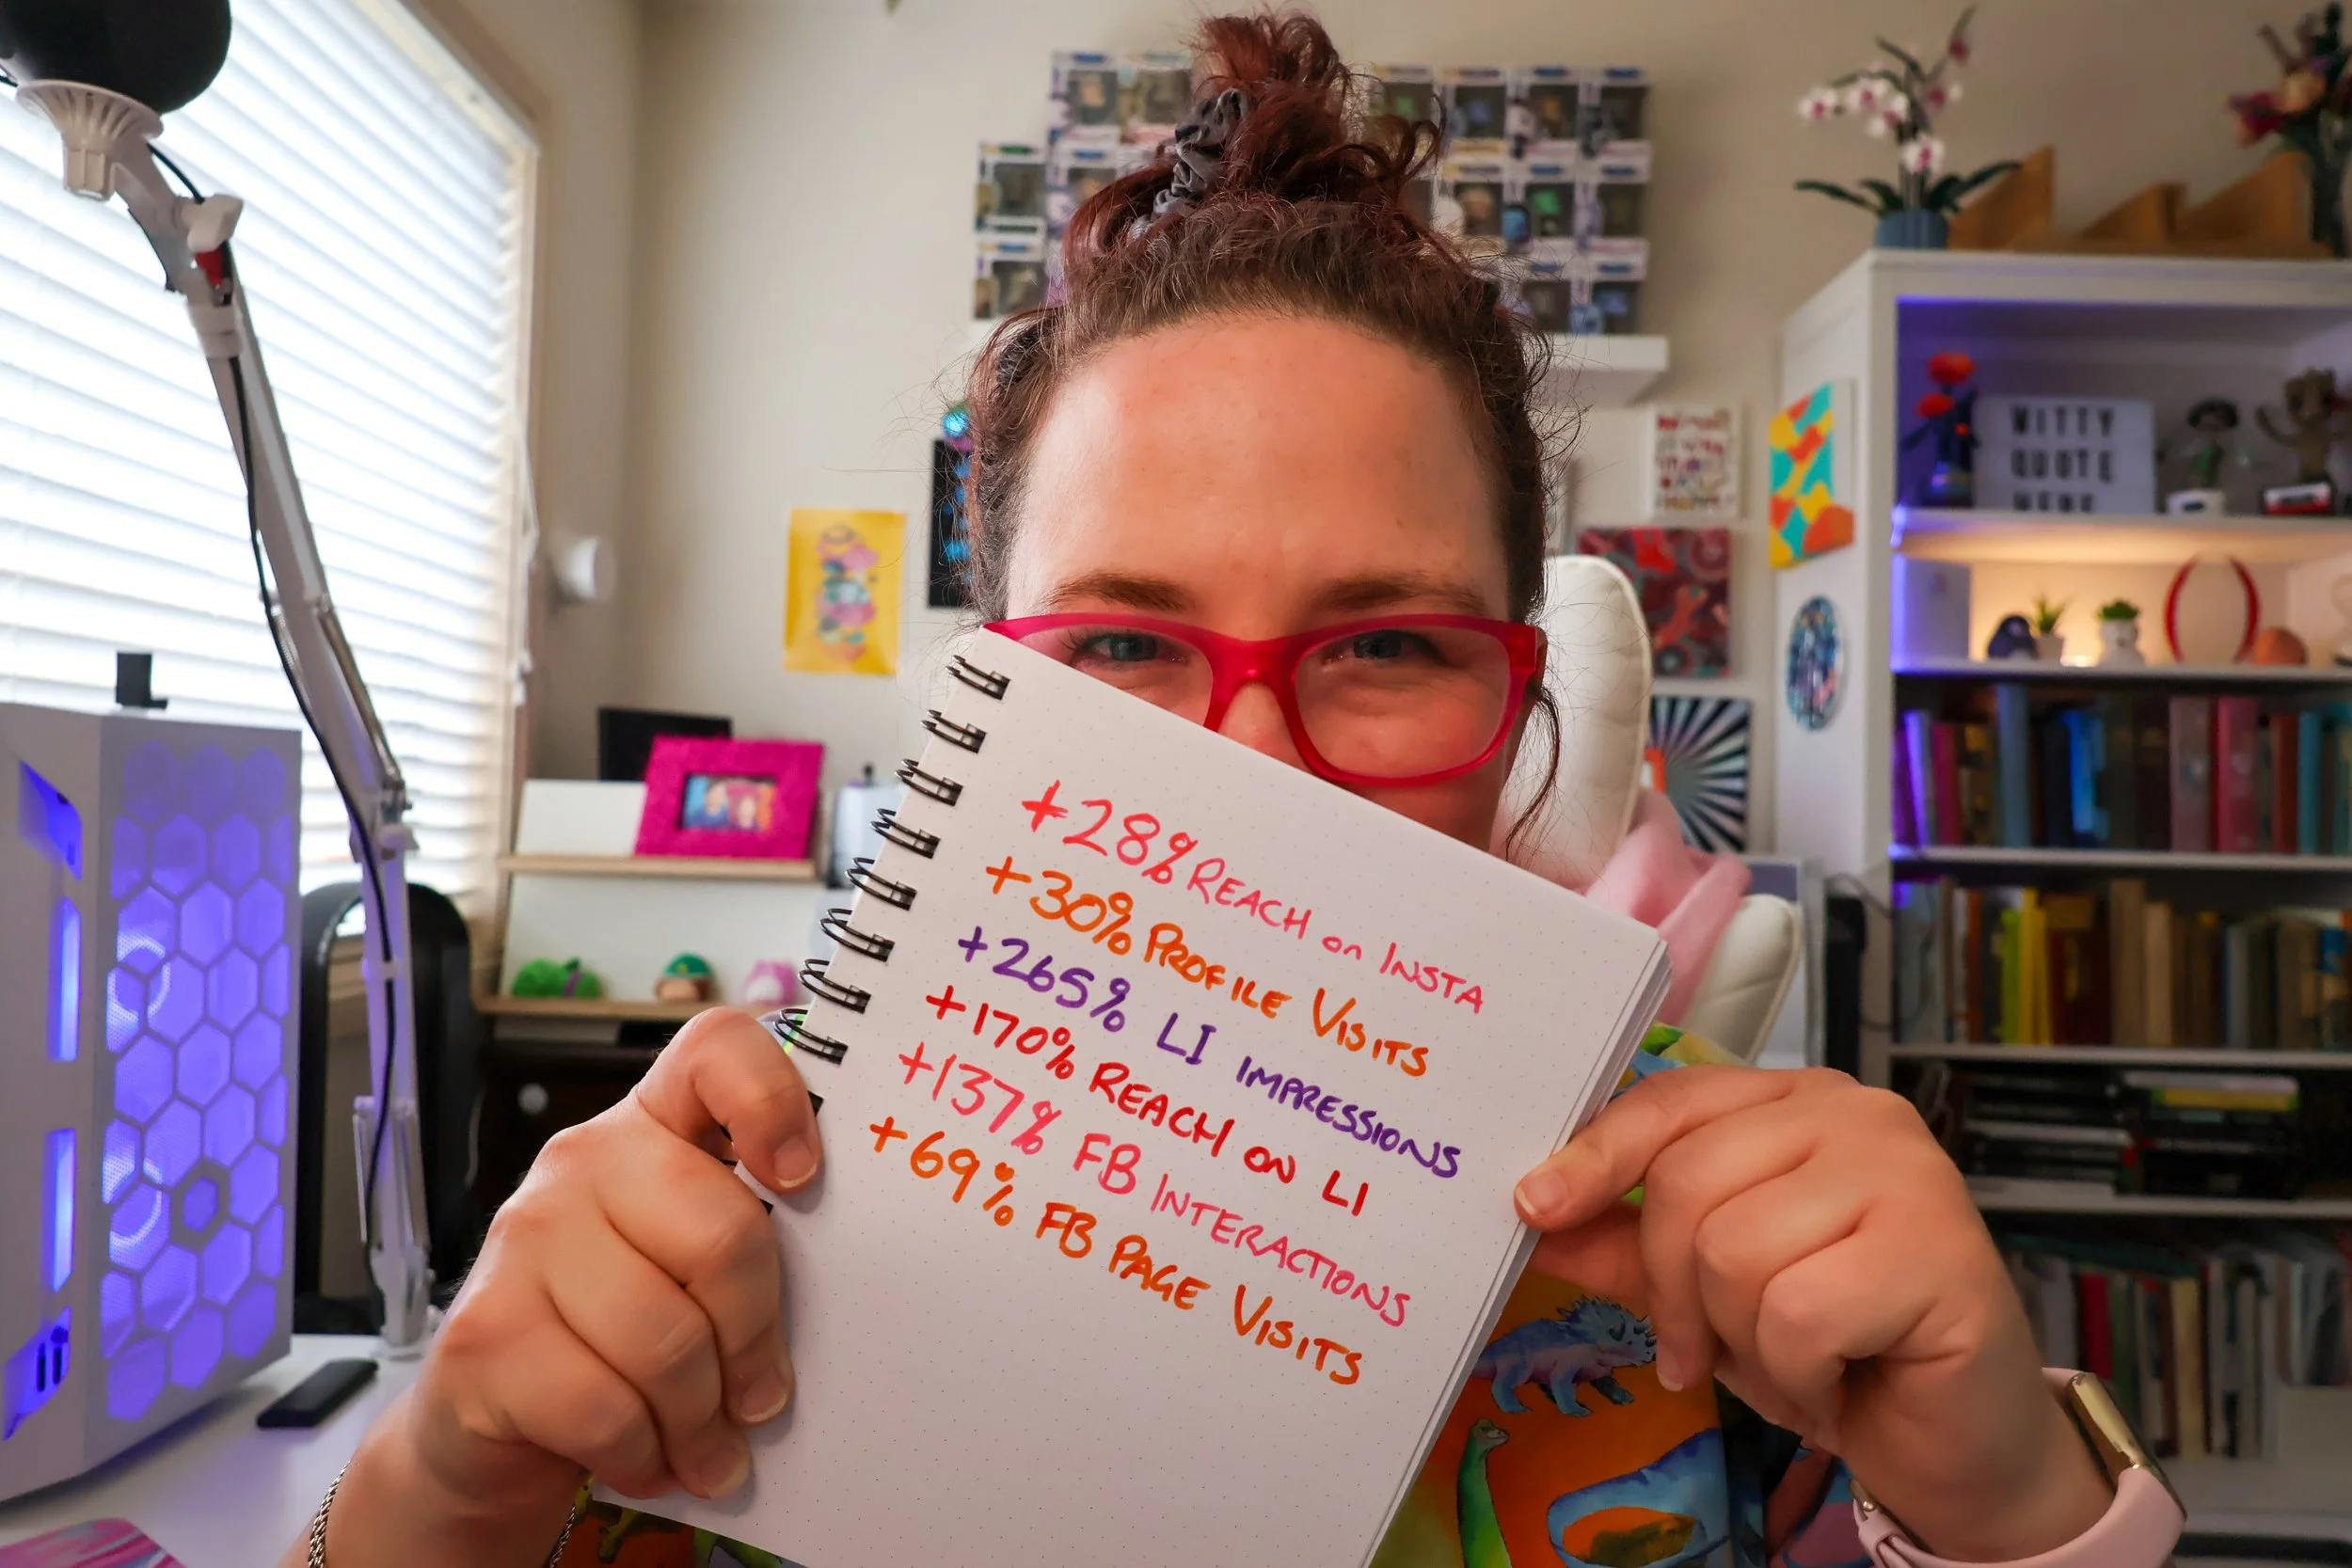 +28% REACH on INSTA
+30% PROFILE VISITS
+265% LI IMPRESSIONS
+170% REACH ON LI
+137% FB INTERACTIONS
+69% FB PAGE VISITS
WITTY
QUOTE
HERE